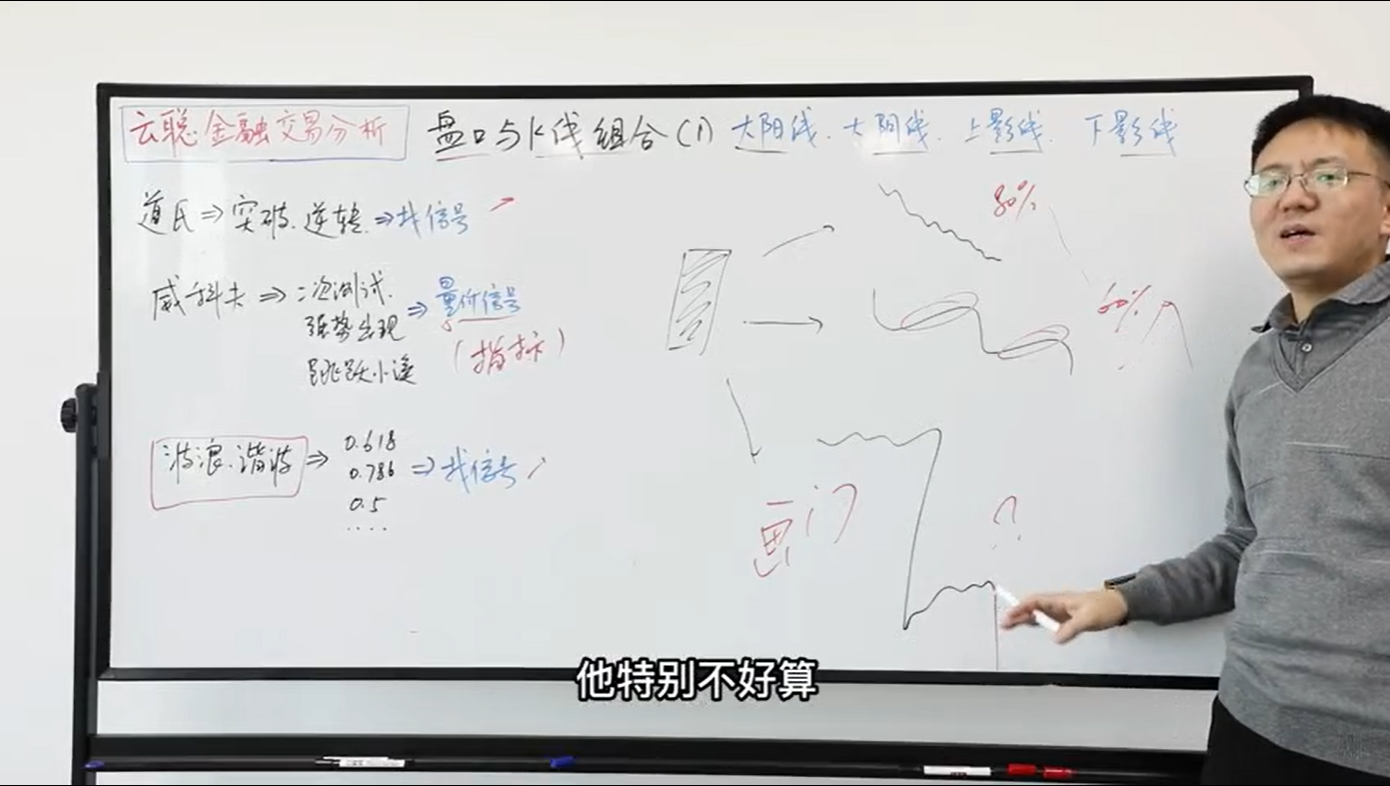 云聪·金融交易分析 盘口与K线组合(1) 大阳线、大阴线、上影线、下影线
道氏⇒突破、逆转⇒找信号
80%
威科夫⇒二次测试、
强势出现
跳跃小溪
⇒量价信号
(指标)
60%
波浪、谐波⇒
0.618
0.786
0.5
....
⇒找信号
画门
?
他特别不好算